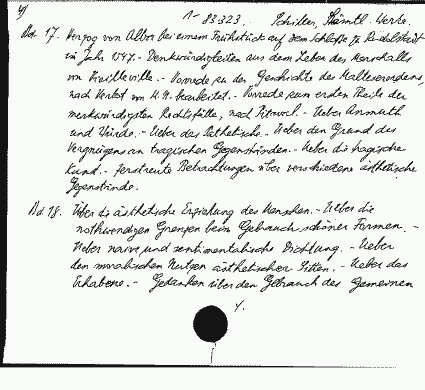 4) 1- 83323. Schiller, Sämtl. Werke.
Bd. 17. Herzog von Alba bei einem Frühstück auf dem Schlosse zu Rudolstadt
im Jahr 1547. - Denkwürdigkeiten aus dem Leben des Marschalls
von Vieilleville. - Vorrede zu der Geschichte des Malteserordens,
nach Vertot von M. N. bearbeitet. - Vorrede zum ersten Theile der
merkwürdigsten Rechtsfälle, nach Pitaval. - Ueber Anmuth
und Würde. - Ueber das Pathetische. - Ueber den Grund des
Vergnügens an tragischen Gegenständen. - Ueber die tragische
Kunst. - Zerstreute Betrachtungen über verschiedene ästhetische
Gegenstände.
Bd. 18. Über die ästhetische Erziehung des Menschen. - Ueber die
nothwendigen Grenzen beim Gebrauch schöner Formen. -
Ueber naive und sentimentalische Dichtung. - Ueber
den moralischen Nutzen ästhetischer Sitten. - Ueber das
Erhabene. - Gedanken über den Gebrauch des Gemeinen